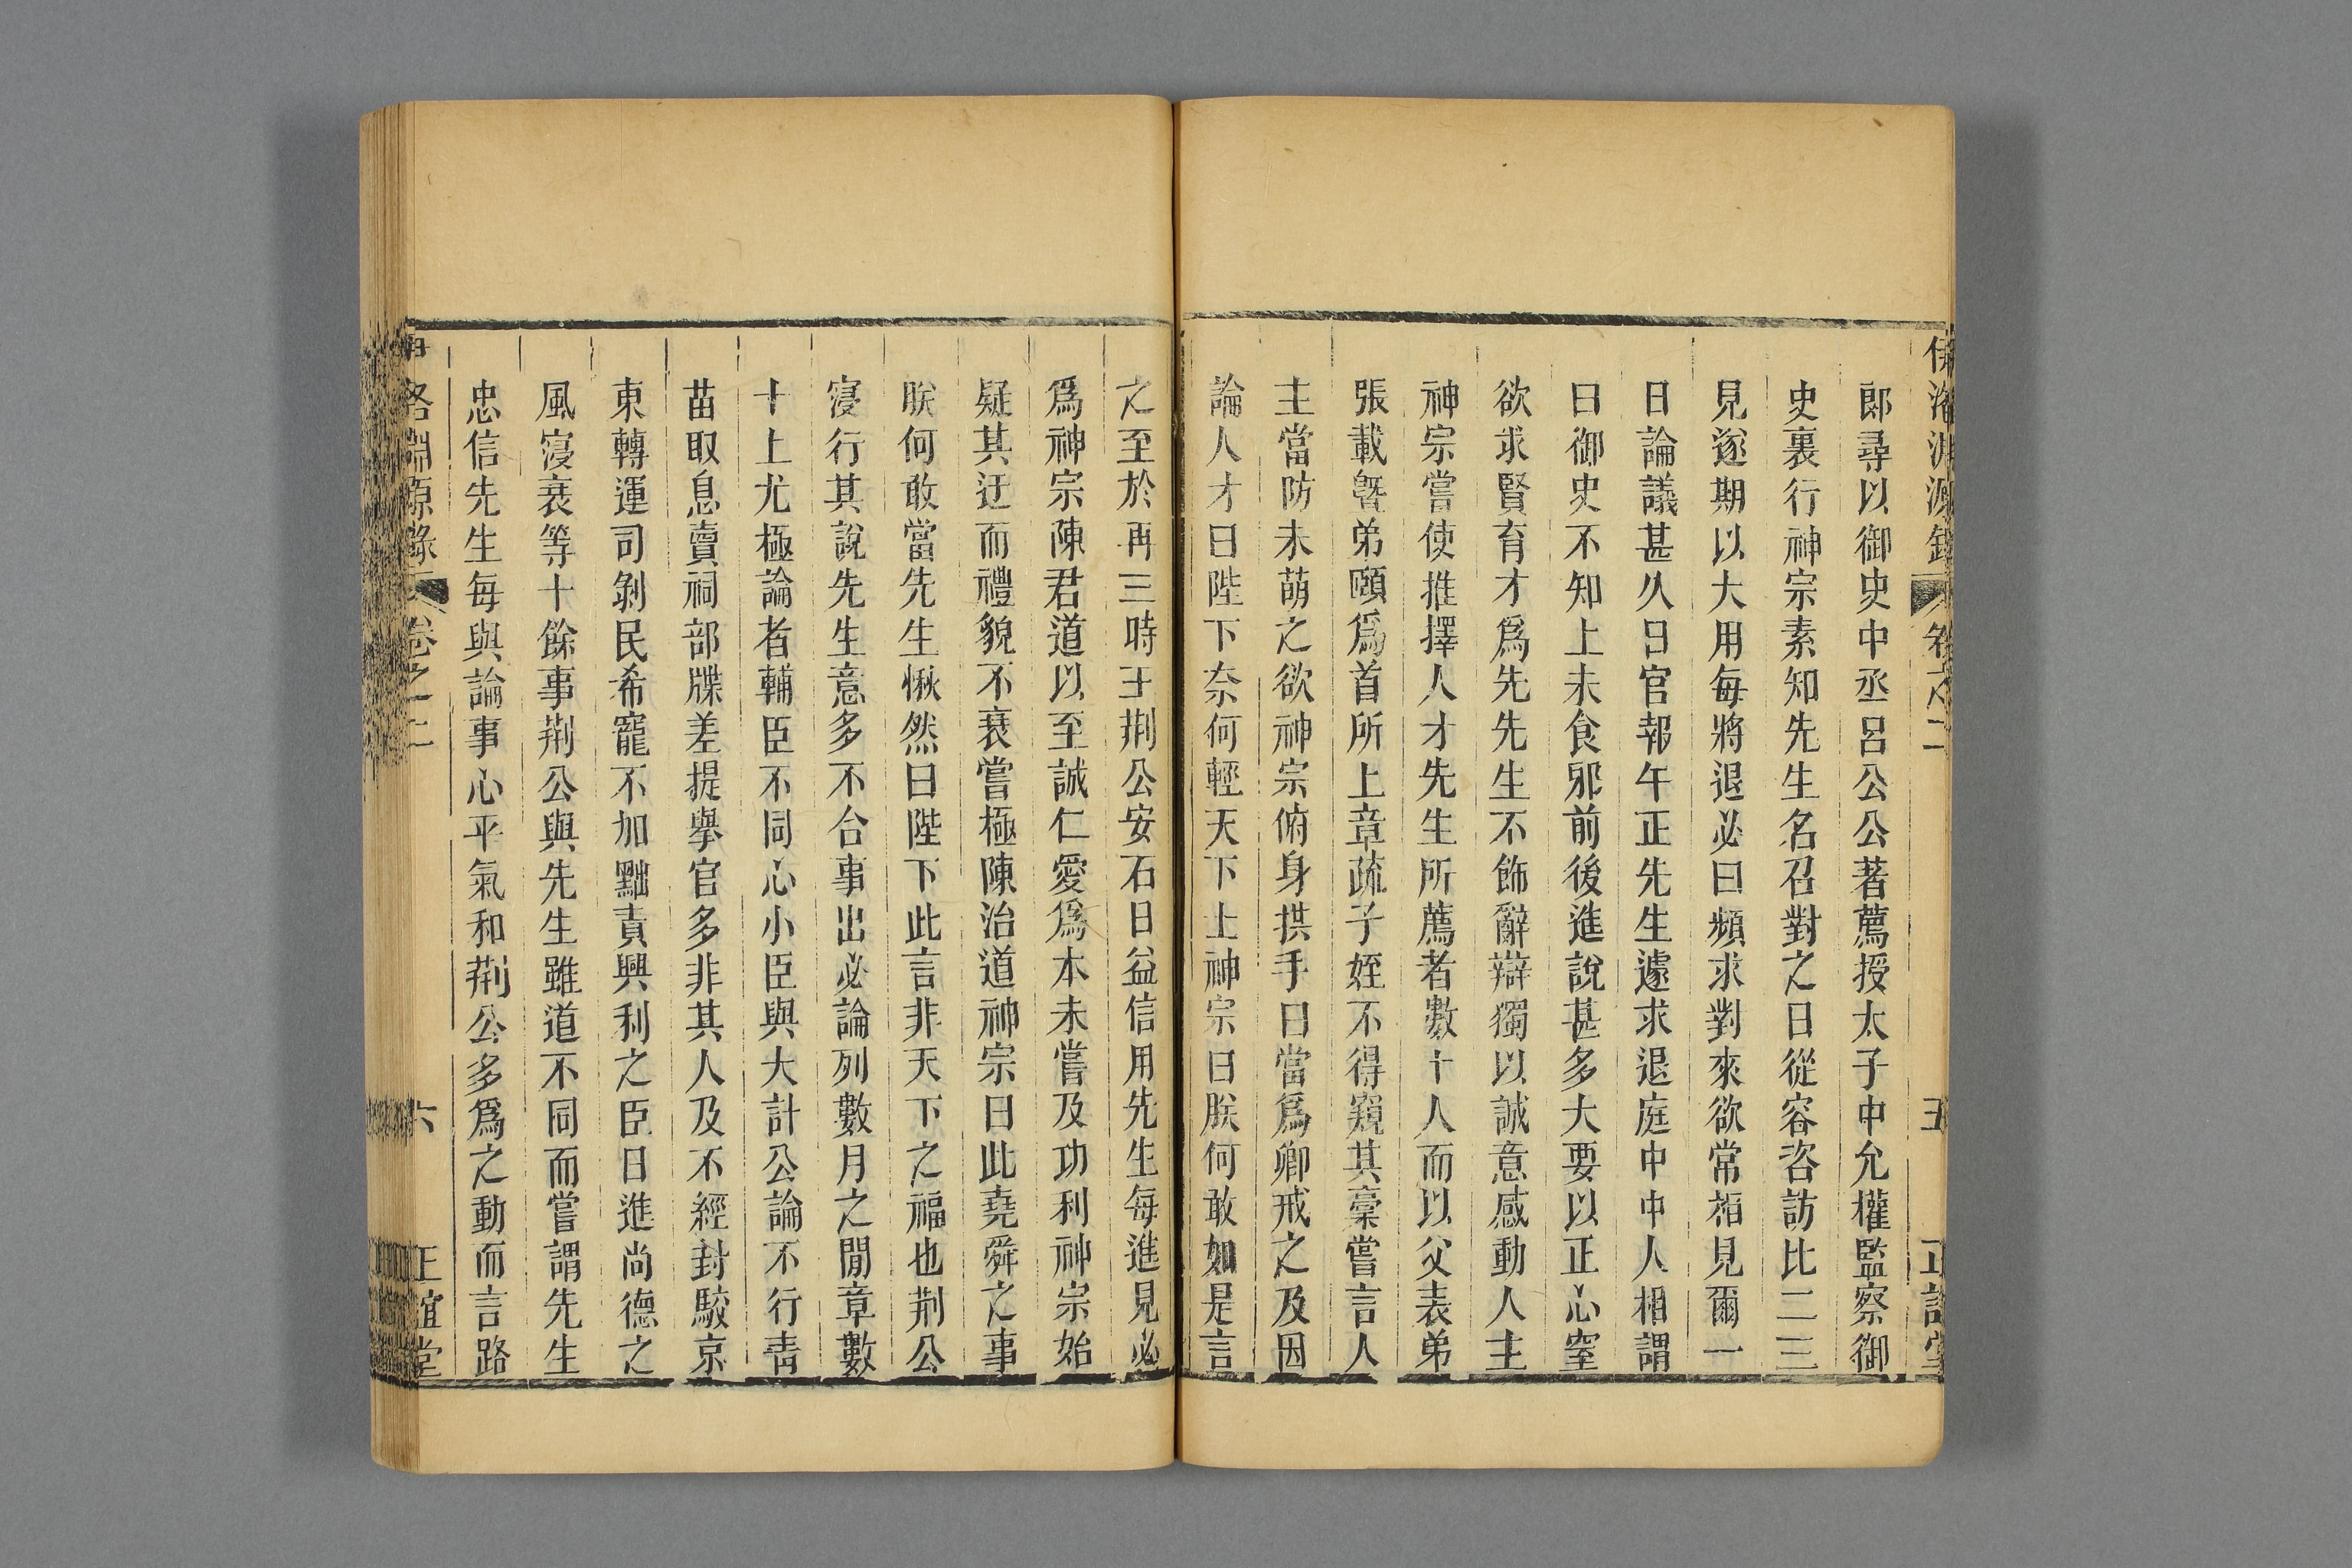 伊洛淵源錄 卷之二 五 正誼堂
郎尋以御史中丞呂公公著薦授太子中允權監察御
史裏行神宗素知先生名召對之日從容咨訪比二三
見遂期以大用每將退必曰頻求對來欲常相見爾一
日論議甚久日官報午正先生遽求退庭中中人相謂
曰御史不知上未食邪前後進說甚多大要以正心窒
欲求賢育才為先先生不飾辭辯獨以誠意感動人主
神宗嘗使推擇人才先生所薦者數十人而以父表弟
張載曁弟頤爲首所上章疏子姪不得窺其稾嘗言人
主當防未萌之欲神宗俯身拱手曰當爲卿戒之及因
論人才曰陛下奈何輕天下士神宗曰朕何敢如是言
之至於再三時王荆公安石日益信用先生每進見必
爲神宗陳君道以至誠仁愛爲本未嘗及功利神宗始
疑其迂而禮貌不衰嘗極陳治道神宗曰此堯舜之事
朕何敢當先生愀然曰陛下此言非天下之福也荆公
寖行其說先生意多不合事出必論列數月之閒章數
十上尤極論者輔臣不同心小臣與大計公論不行靑
苗取息賣祠部牒差提舉官多非其人及不經封駮京
東轉運司剝民希寵不加黜責興利之臣日進尚德之
風寖衰等十餘事荆公與先生雖道不同而嘗謂先生
忠信先生每與論事心平氣和荆公多爲之動而言路
洛淵源錄 卷之二 六 正誼堂